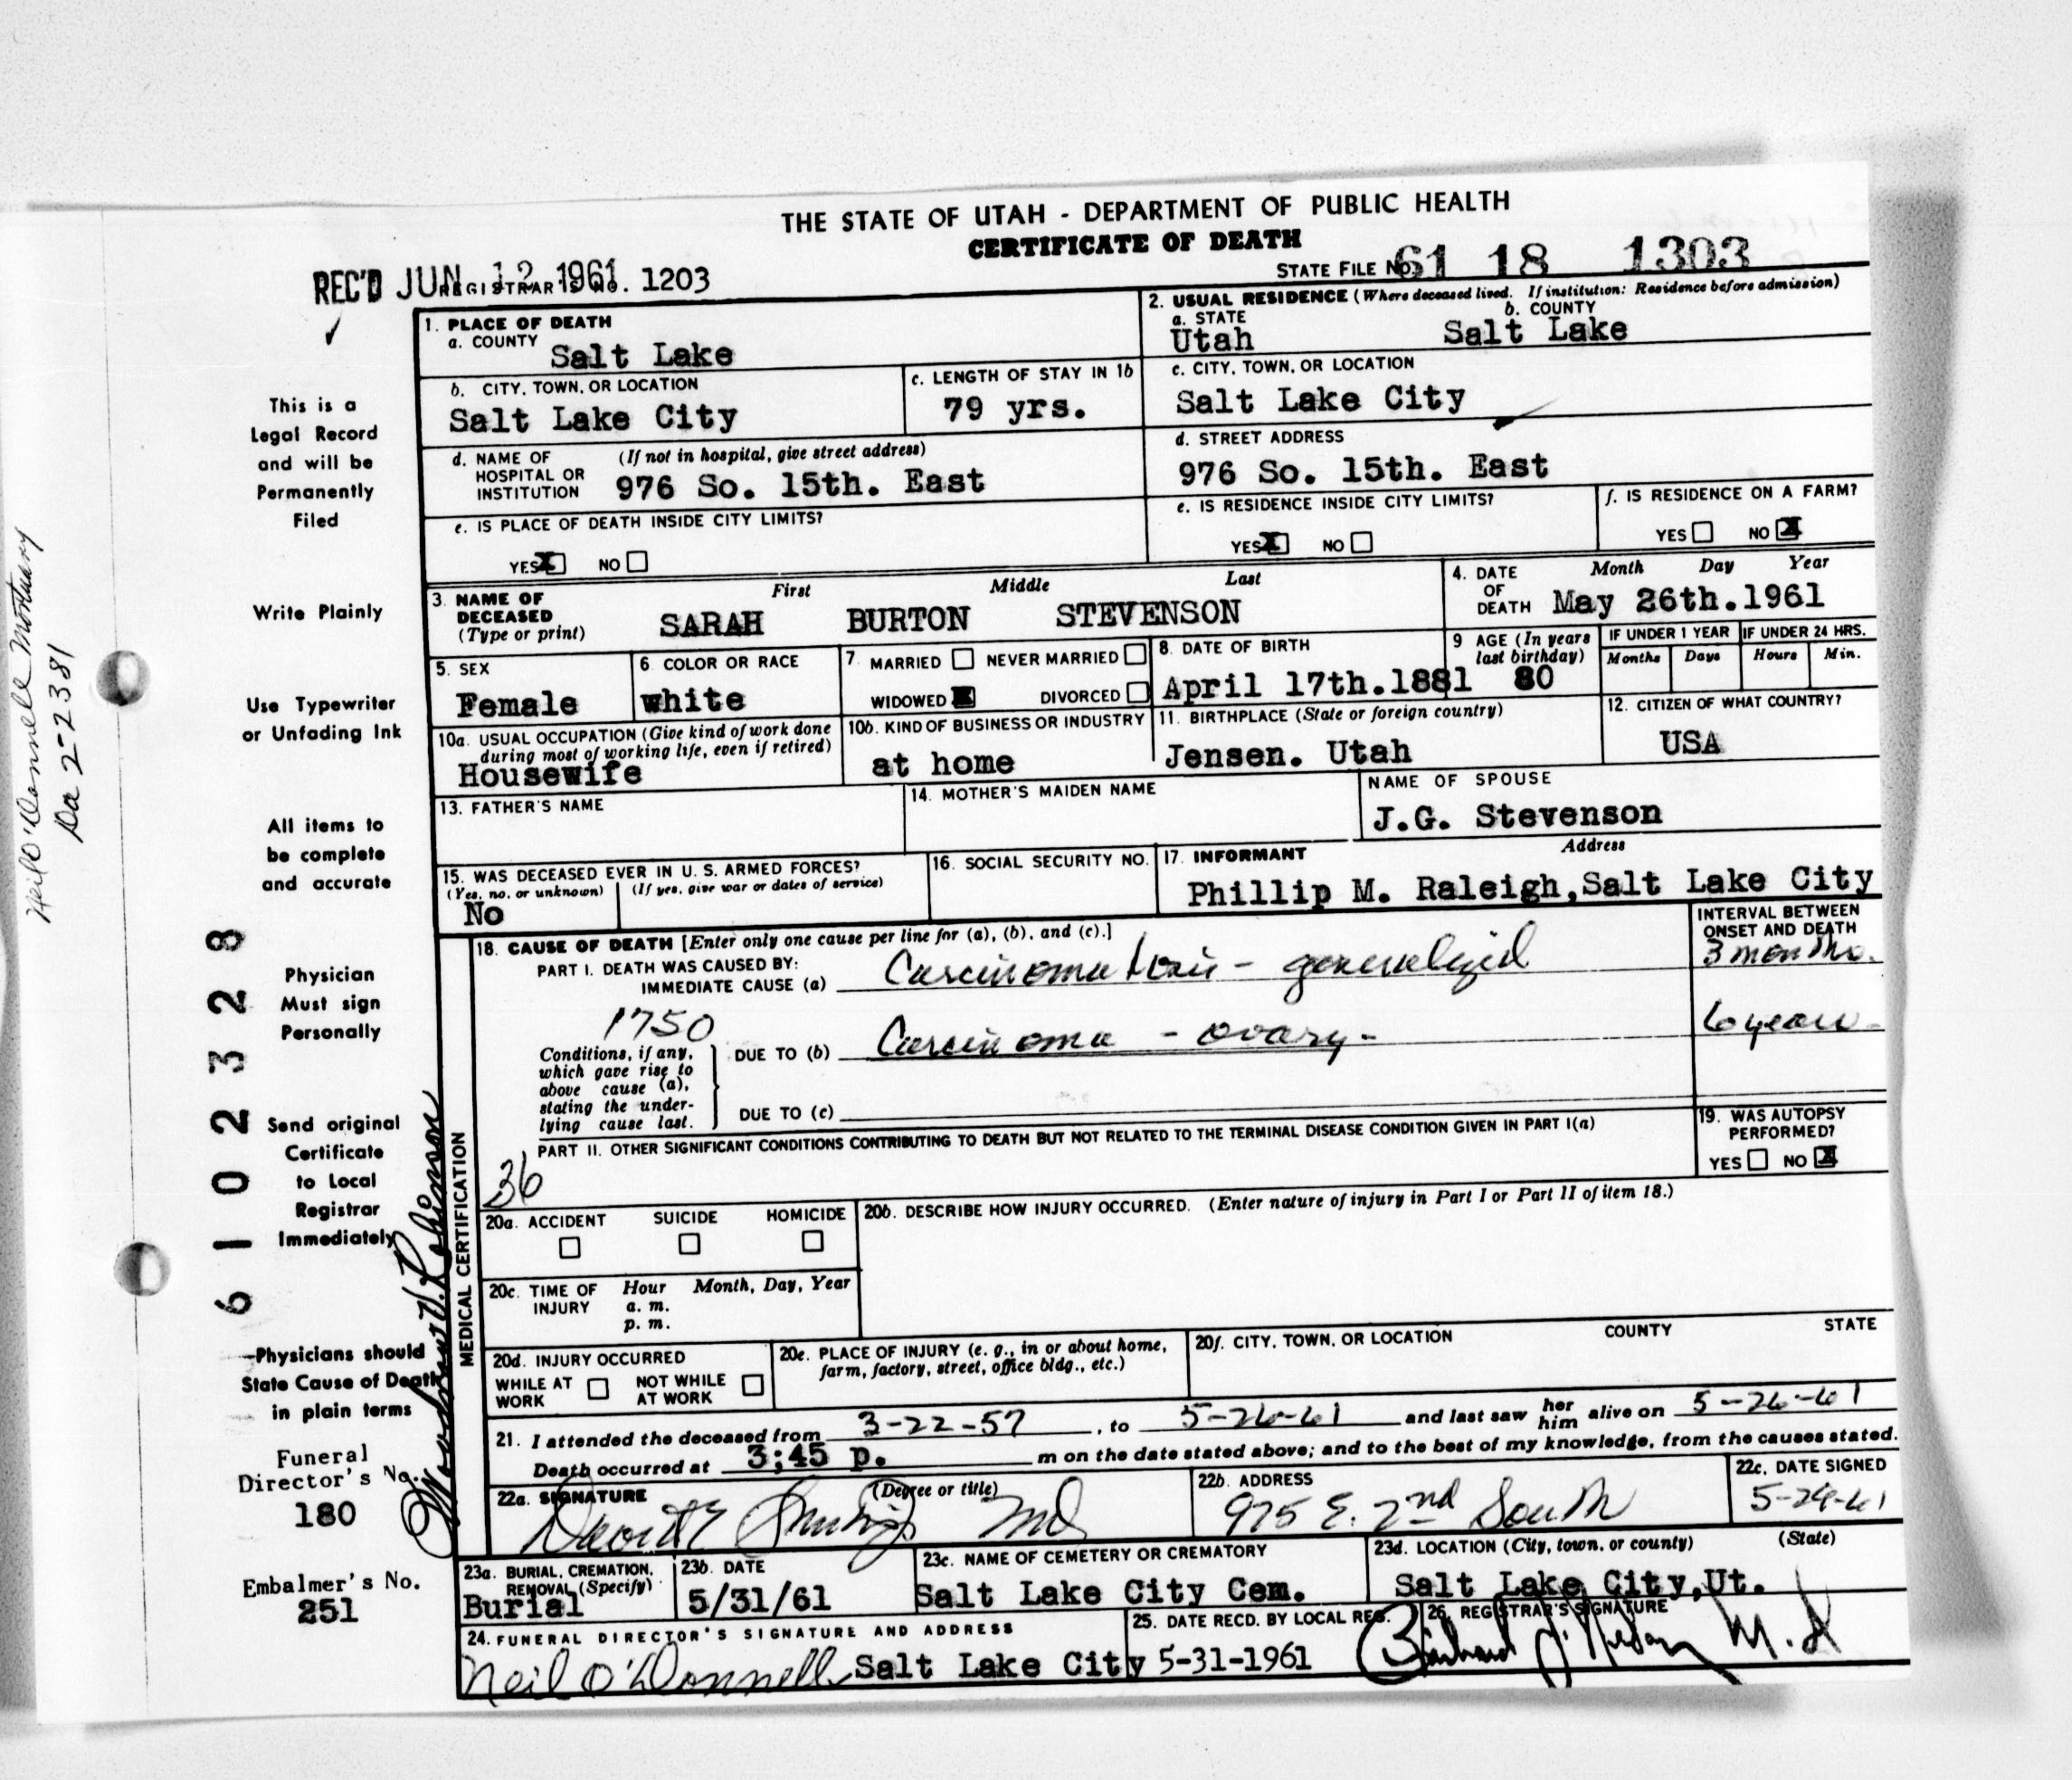 THE STATE OF UTAH - DEPARTMENT OF PUBLIC HEALTH
CERTIFICATE OF DEATH
REC'D JUN 12 1961
REGISTRAR'S NO. 1203
STATE FILE No. 61 18 1303
This is a
Legal Record
and will be
Permanently
Filed
Write Plainly
Use Typewriter
or Unfading Ink
All items to
be complete
and accurate
Physician
Must sign
Personally
Send original
Certificate
to Local
Registrar
Immediately
Physicians should
State Cause of Death
in plain terms
Funeral
Director's No.
180
Embalmer's No.
251
Neil O'Donnell Mortuary
Da 2-2381
6102328
MEDICAL CERTIFICATION
1. PLACE OF DEATH
a. COUNTY Salt Lake
2. USUAL RESIDENCE (Where deceased lived. If institution: Residence before admission)
a. STATE Utah
b. COUNTY Salt Lake
b. CITY, TOWN, OR LOCATION
Salt Lake City
c. LENGTH OF STAY IN 1b
79 yrs.
c. CITY, TOWN, OR LOCATION
Salt Lake City
d. NAME OF HOSPITAL OR INSTITUTION (If not in hospital, give street address)
976 So. 15th. East
d. STREET ADDRESS
976 So. 15th. East
e. IS PLACE OF DEATH INSIDE CITY LIMITS?
YES X NO
e. IS RESIDENCE INSIDE CITY LIMITS?
YES X NO
f. IS RESIDENCE ON A FARM?
YES NO X
3. NAME OF DECEASED (Type or print)
First Middle Last
SARAH BURTON STEVENSON
4. DATE OF DEATH Month Day Year
May 26th.1961
5. SEX
Female
6. COLOR OR RACE
white
7. MARRIED NEVER MARRIED
WIDOWED X DIVORCED
8. DATE OF BIRTH
April 17th.1881
9 AGE (In years last birthday)
80
IF UNDER 1 YEAR Months Days
IF UNDER 24 HRS. Hours Min.
10a. USUAL OCCUPATION (Give kind of work done during most of working life, even if retired)
Housewife
10b. KIND OF BUSINESS OR INDUSTRY
at home
11. BIRTHPLACE (State or foreign country)
Jensen. Utah
12. CITIZEN OF WHAT COUNTRY?
USA
13. FATHER'S NAME
14. MOTHER'S MAIDEN NAME
NAME OF SPOUSE
J.G. Stevenson
15. WAS DECEASED EVER IN U. S. ARMED FORCES?
(Yes, no, or unknown) (If yes, give war or dates of service)
No
16. SOCIAL SECURITY NO.
17. INFORMANT Address
Phillip M. Raleigh,Salt Lake City
18. CAUSE OF DEATH [Enter only one cause per line for (a), (b), and (c).]
INTERVAL BETWEEN ONSET AND DEATH
PART I. DEATH WAS CAUSED BY:
IMMEDIATE CAUSE (a) Carcinomatosis - generalized
3 months.
1750
Conditions, if any, which gave rise to above cause (a), stating the underlying cause last.
DUE TO (b) Carcinoma - ovary -
6 years -
DUE TO (c)
PART II. OTHER SIGNIFICANT CONDITIONS CONTRIBUTING TO DEATH BUT NOT RELATED TO THE TERMINAL DISEASE CONDITION GIVEN IN PART I(a)
36
19. WAS AUTOPSY PERFORMED?
YES NO X
20a. ACCIDENT SUICIDE HOMICIDE
20b. DESCRIBE HOW INJURY OCCURRED. (Enter nature of injury in Part I or Part II of item 18.)
20c. TIME OF INJURY Hour a. m. p. m. Month, Day, Year
20d. INJURY OCCURRED
WHILE AT WORK NOT WHILE AT WORK
20e. PLACE OF INJURY (e. g., in or about home, farm, factory, street, office bldg., etc.)
20f. CITY, TOWN, OR LOCATION COUNTY STATE
21. I attended the deceased from 3-22-57, to 5-26-61 and last saw her him alive on 5-26-61
Death occurred at 3;45 p. m on the date stated above; and to the best of my knowledge, from the causes stated.
22a. SIGNATURE (Degree or title)
MD
22b. ADDRESS
975 E. 2nd South
22c. DATE SIGNED
5-29-61
23a. BURIAL, CREMATION, REMOVAL (Specify)
Burial
23b. DATE
5/31/61
23c. NAME OF CEMETERY OR CREMATORY
Salt Lake City Cem.
23d. LOCATION (City, town, or county) (State)
Salt Lake City,Ut.
24. FUNERAL DIRECTOR'S SIGNATURE AND ADDRESS
Neil O'Donnell Salt Lake City
25. DATE RECD. BY LOCAL REG.
5-31-1961
26. REGISTRAR'S SIGNATURE
M.D